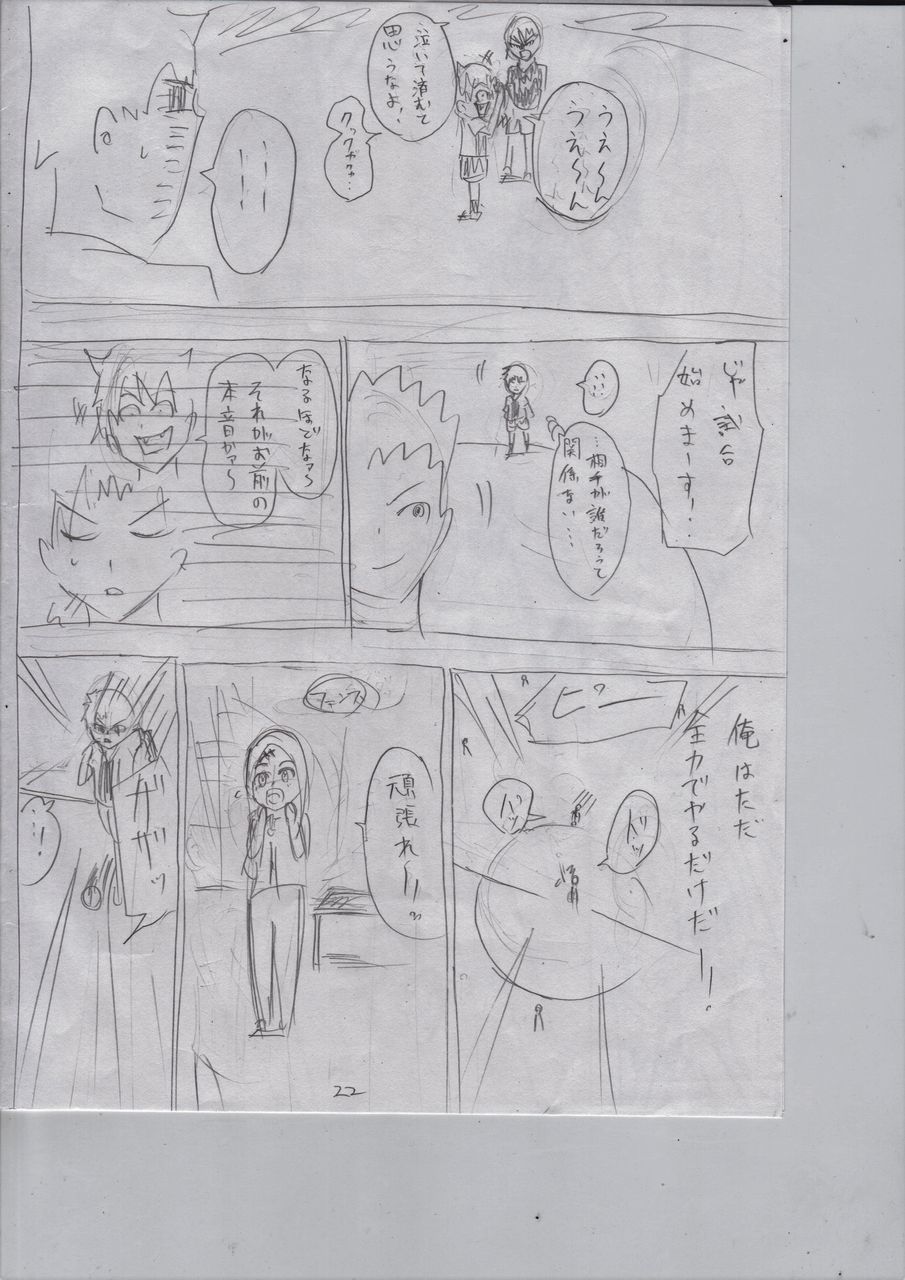 うえ〜ん
うえ〜ん
泣いて済むて
思うなよ!
クックックッ…
……
じゃ試合
始めまーす!
……
…相手が誰だろうて
関係ない…
なるほどなァ〜
それがお前の
本音かァ〜
俺はただ
全力でやるだけだー!
ピー
ドッ
バッ
フェンス
頑張れーっ
ザザッ
…!
22